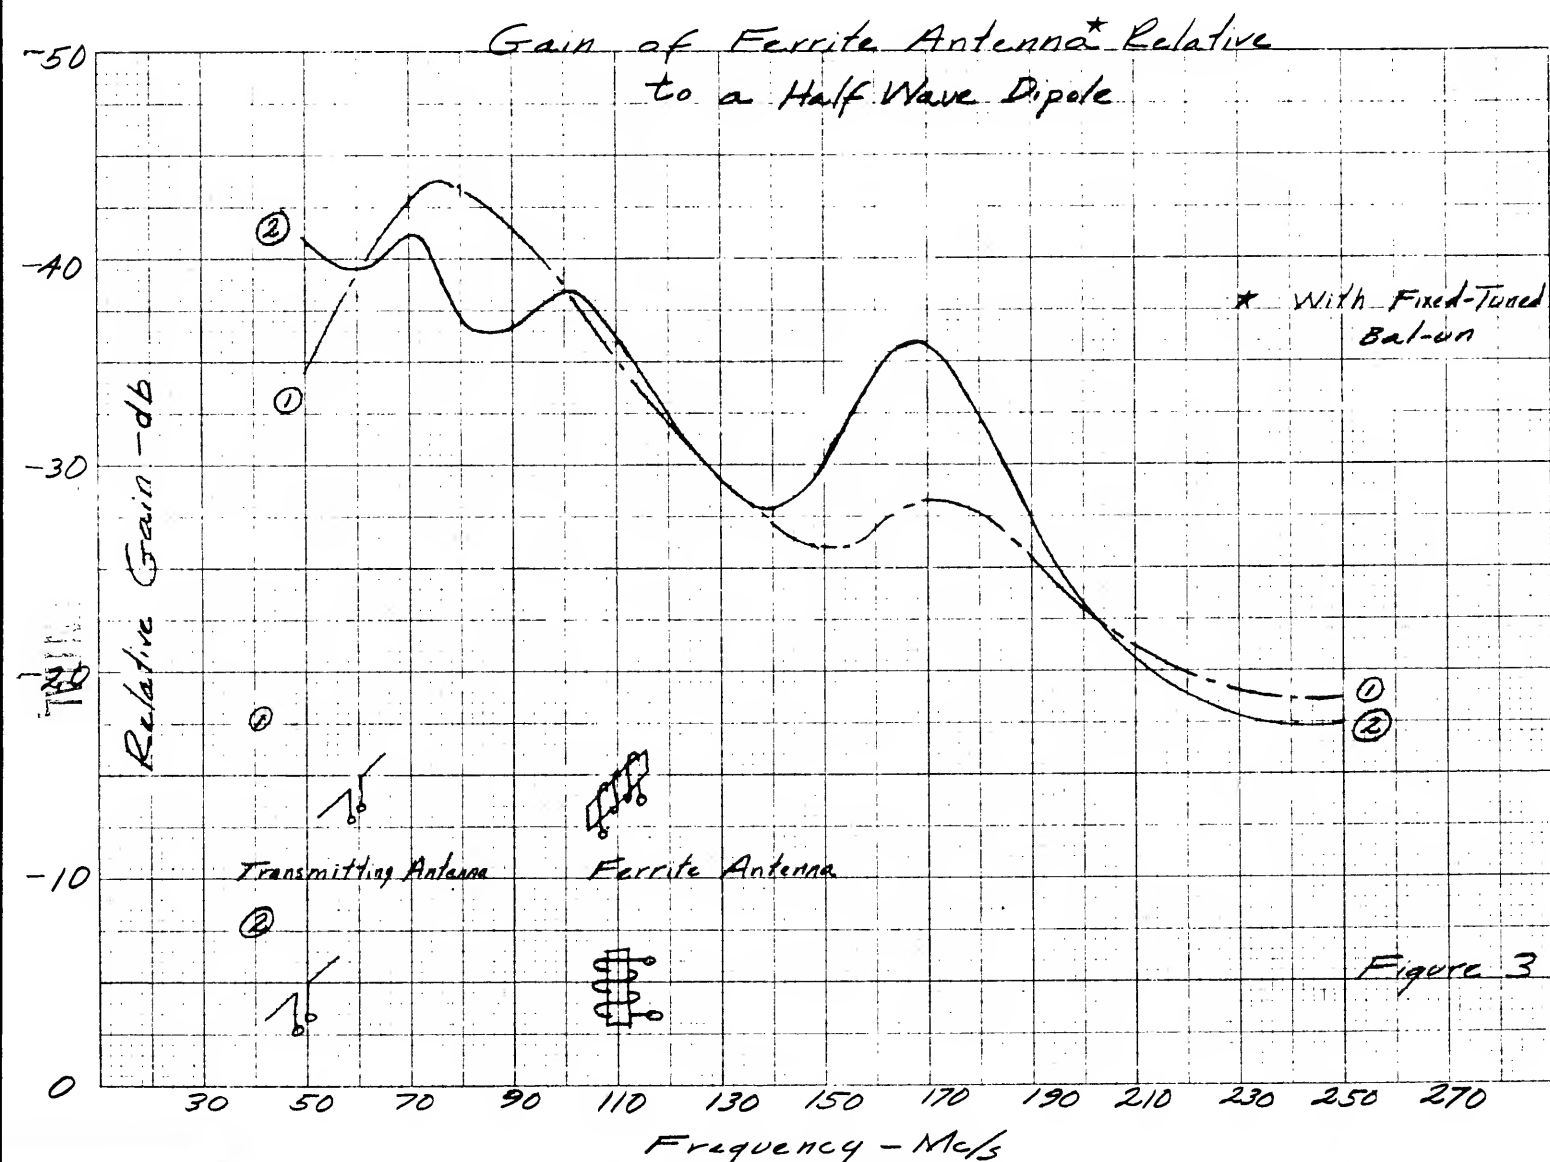 Gain of Ferrite Antenna* Relative
to a Half Wave Dipole
-50
-40
-30
-20
-10
0
Relative Gain-db
②
①
* With Fixed-Tuned
Bal-un
①
②
①
Transmitting Antenna
Ferrite Antenna
②
Figure 3
30 50 70 90 110 130 150 170 190 210 230 250 270
Frequency - Mc/s